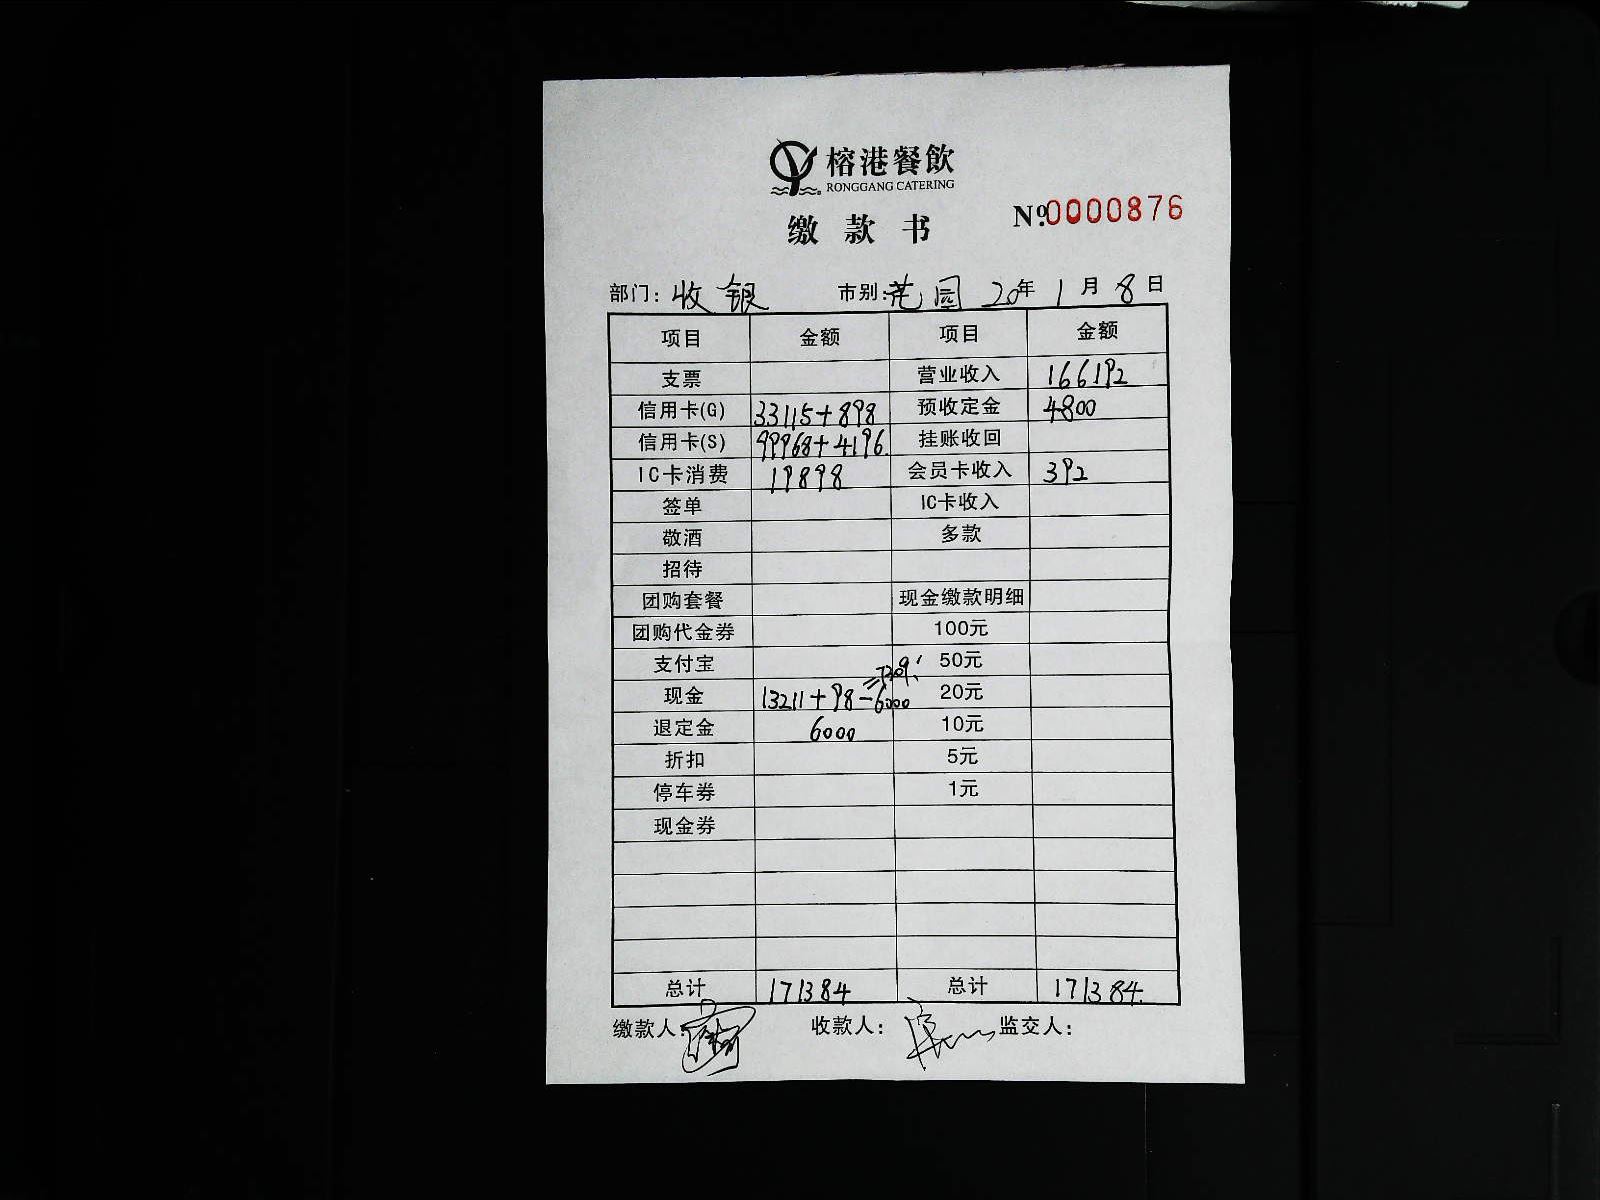 榕港餐飲
RONGGANG CATERING
缴款书
Nº.0000876
部门：收银 市别：花园 20年 1月 8日
项目 金额 项目 金额
支票 营业收入 166192
信用卡(G) 33115+898 预收定金 4800
信用卡(S) 99968+4196. 挂账收回
IC卡消费 19898 会员卡收入 392
签单 IC卡收入
敬酒 多款
招待
团购套餐 现金缴款明细
团购代金券 100元
支付宝 50元
=7309.
现金 13211+98-6000 20元
退定金 6000 10元
折扣 5元
停车券 1元
现金券
总计 171384 总计 171384.
缴款人： 收款人： 监交人：